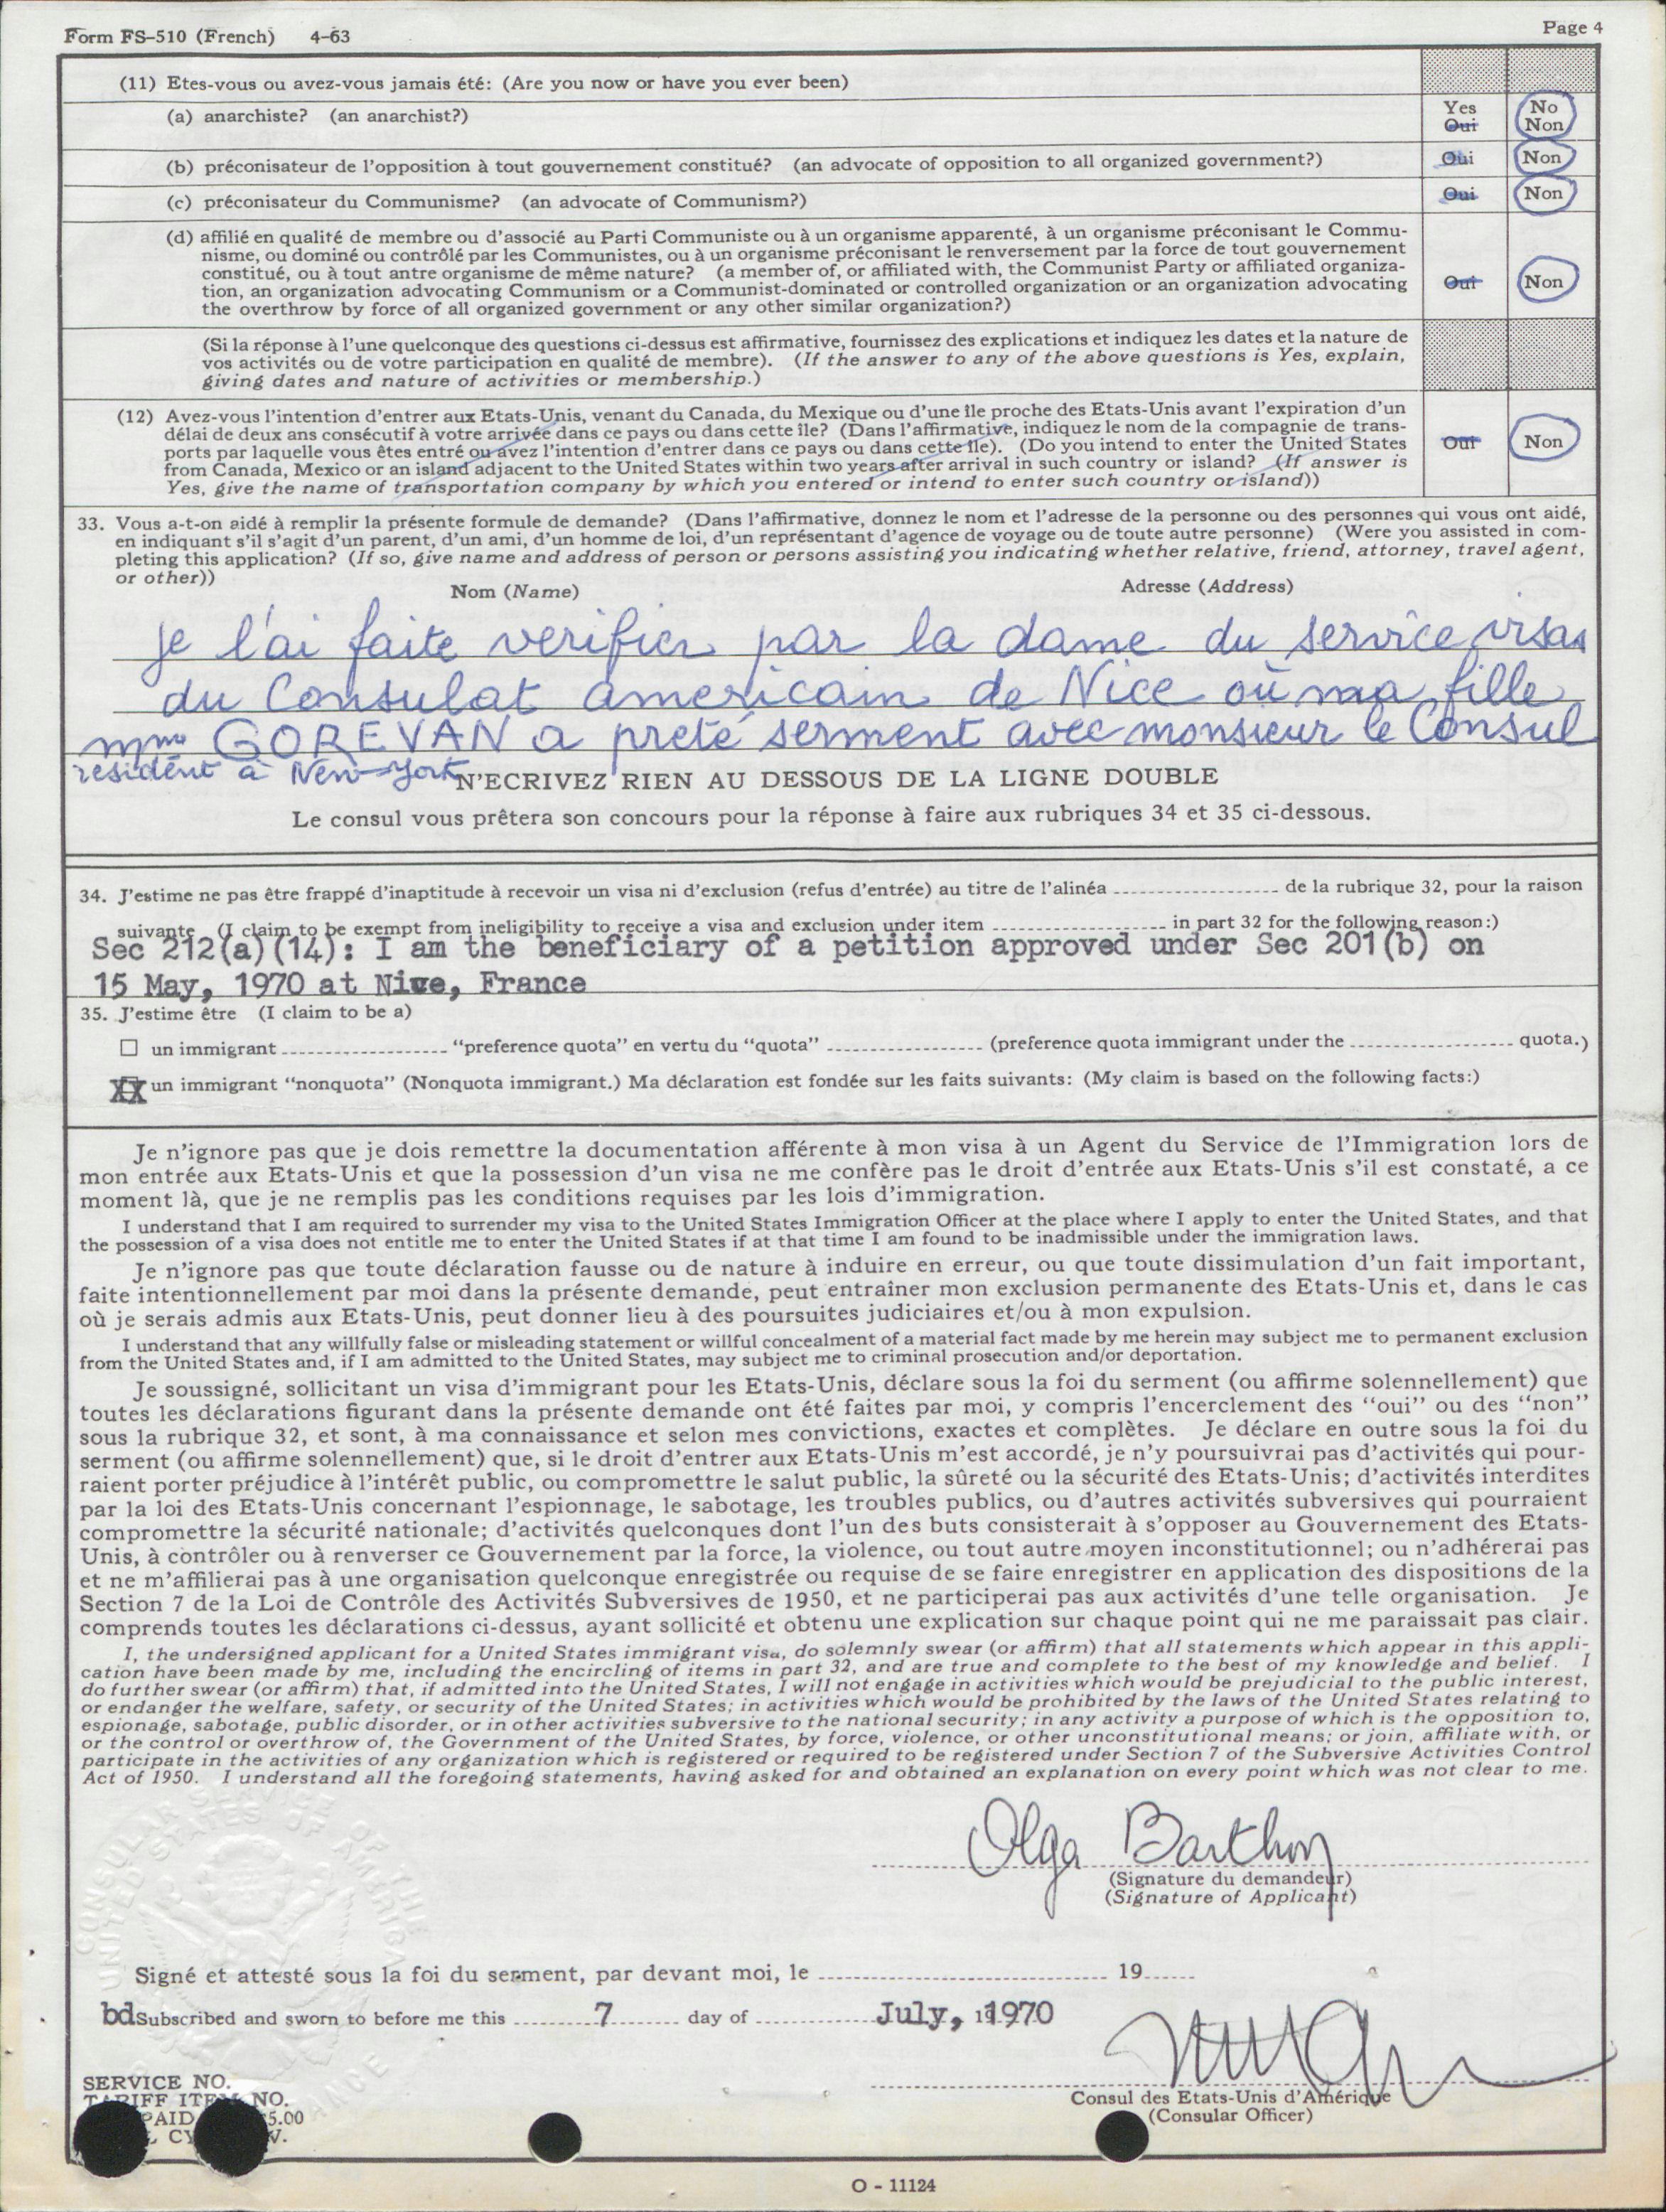 Form FS-510 (French) 4-63
Page 4
(11) Etes-vous ou avez-vous jamais été: (Are you now or have you ever been)
(a) anarchiste? (an anarchist?)
Yes No
Oui Non
(b) préconisateur de l'opposition à tout gouvernement constitué? (an advocate of opposition to all organized government?)
Oui Non
(c) préconisateur du Communisme? (an advocate of Communism?)
Oui Non
(d) affilié en qualité de membre ou d'associé au Parti Communiste ou à un organisme apparenté, à un organisme préconisant le Commu-
nisme, ou dominé ou contrôlé par les Communistes, ou à un organisme préconisant le renversement par la force de tout gouvernement
constitué, ou à tout antre organisme de même nature? (a member of, or affiliated with, the Communist Party or affiliated organiza-
tion, an organization advocating Communism or a Communist-dominated or controlled organization or an organization advocating
the overthrow by force of all organized government or any other similar organization?)
Oui Non
(Si la réponse à l'une quelconque des questions ci-dessus est affirmative, fournissez des explications et indiquez les dates et la nature de
vos activités ou de votre participation en qualité de membre). (If the answer to any of the above questions is Yes, explain,
giving dates and nature of activities or membership.)
(12) Avez-vous l'intention d'entrer aux Etats-Unis, venant du Canada, du Mexique ou d'une île proche des Etats-Unis avant l'expiration d'un
délai de deux ans consécutif à votre arrivée dans ce pays ou dans cette île? (Dans l'affirmative, indiquez le nom de la compagnie de trans-
ports par laquelle vous êtes entré ou avez l'intention d'entrer dans ce pays ou dans cette île). (Do you intend to enter the United States
from Canada, Mexico or an island adjacent to the United States within two years after arrival in such country or island? (If answer is
Yes, give the name of transportation company by which you entered or intend to enter such country or island))
Oui Non
33. Vous a-t-on aidé à remplir la présente formule de demande? (Dans l'affirmative, donnez le nom et l'adresse de la personne ou des personnes qui vous ont aidé,
en indiquant s'il s'agit d'un parent, d'un ami, d'un homme de loi, d'un représentant d'agence de voyage ou de toute autre personne) (Were you assisted in com-
pleting this application? (If so, give name and address of person or persons assisting you indicating whether relative, friend, attorney, travel agent,
or other))
Nom (Name) Adresse (Address)
je l'ai faite verifier par la dame du service visas
du Consulat americain de Nice où ma fille
mme GOREVAN a preté serment avec monsieur le Consul
résident à New-York
N'ECRIVEZ RIEN AU DESSOUS DE LA LIGNE DOUBLE
Le consul vous prêtera son concours pour la réponse à faire aux rubriques 34 et 35 ci-dessous.
34. J'estime ne pas être frappé d'inaptitude à recevoir un visa ni d'exclusion (refus d'entrée) au titre de l'alinéa de la rubrique 32, pour la raison
suivante (I claim to be exempt from ineligibility to receive a visa and exclusion under item in part 32 for the following reason:)
Sec 212(a)(14): I am the beneficiary of a petition approved under Sec 201(b) on
15 May, 1970 at Nice, France
35. J'estime être (I claim to be a)
un immigrant "preference quota" en vertu du "quota" (preference quota immigrant under the quota.)
XX un immigrant "nonquota" (Nonquota immigrant.) Ma déclaration est fondée sur les faits suivants: (My claim is based on the following facts:)
Je n'ignore pas que je dois remettre la documentation afférente à mon visa à un Agent du Service de l'Immigration lors de
mon entrée aux Etats-Unis et que la possession d'un visa ne me confère pas le droit d'entrée aux Etats-Unis s'il est constaté, a ce
moment là, que je ne remplis pas les conditions requises par les lois d'immigration.
I understand that I am required to surrender my visa to the United States Immigration Officer at the place where I apply to enter the United States, and that
the possession of a visa does not entitle me to enter the United States if at that time I am found to be inadmissible under the immigration laws.
Je n'ignore pas que toute déclaration fausse ou de nature à induire en erreur, ou que toute dissimulation d'un fait important,
faite intentionnellement par moi dans la présente demande, peut entraîner mon exclusion permanente des Etats-Unis et, dans le cas
où je serais admis aux Etats-Unis, peut donner lieu à des poursuites judiciaires et/ou à mon expulsion.
I understand that any willfully false or misleading statement or willful concealment of a material fact made by me herein may subject me to permanent exclusion
from the United States and, if I am admitted to the United States, may subject me to criminal prosecution and/or deportation.
Je soussigné, sollicitant un visa d'immigrant pour les Etats-Unis, déclare sous la foi du serment (ou affirme solennellement) que
toutes les déclarations figurant dans la présente demande ont été faites par moi, y compris l'encerclement des "oui" ou des "non"
sous la rubrique 32, et sont, à ma connaissance et selon mes convictions, exactes et complètes. Je déclare en outre sous la foi du
serment (ou affirme solennellement) que, si le droit d'entrer aux Etats-Unis m'est accordé, je n'y poursuivrai pas d'activités qui pour-
raient porter préjudice à l'intérêt public, ou compromettre le salut public, la sûreté ou la sécurité des Etats-Unis; d'activités interdites
par la loi des Etats-Unis concernant l'espionnage, le sabotage, les troubles publics, ou d'autres activités subversives qui pourraient
compromettre la sécurité nationale; d'activités quelconques dont l'un des buts consisterait à s'opposer au Gouvernement des Etats-
Unis, à contrôler ou à renverser ce Gouvernement par la force, la violence, ou tout autre moyen inconstitutionnel; ou n'adhérerai pas
et ne m'affilierai pas à une organisation quelconque enregistrée ou requise de se faire enregistrer en application des dispositions de la
Section 7 de la Loi de Contrôle des Activités Subversives de 1950, et ne participerai pas aux activités d'une telle organisation. Je
comprends toutes les déclarations ci-dessus, ayant sollicité et obtenu une explication sur chaque point qui ne me paraissait pas clair.
I, the undersigned applicant for a United States immigrant visa, do solemnly swear (or affirm) that all statements which appear in this appli-
cation have been made by me, including the encircling of items in part 32, and are true and complete to the best of my knowledge and belief. I
do further swear (or affirm) that, if admitted into the United States, I will not engage in activities which would be prejudicial to the public interest,
or endanger the welfare, safety, or security of the United States; in activities which would be prohibited by the laws of the United States relating to
espionage, sabotage, public disorder, or in other activities subversive to the national security; in any activity a purpose of which is the opposition to,
or the control or overthrow of, the Government of the United States, by force, violence, or other unconstitutional means; or join, affiliate with, or
participate in the activities of any organization which is registered or required to be registered under Section 7 of the Subversive Activities Control
Act of 1950. I understand all the foregoing statements, having asked for and obtained an explanation on every point which was not clear to me.
CONSULAR SERVICE OF THE
UNITED STATES OF AMERICA
Olga Barthon
(Signature du demandeur)
(Signature of Applicant)
Signé et attesté sous la foi du serment, par devant moi, le 19
bd Subscribed and sworn to before me this 7 day of July, 1970
Consul des Etats-Unis d'Amérique
(Consular Officer)
SERVICE NO.
TARIFF ITEM NO.
PAID 5.00
O - 11124